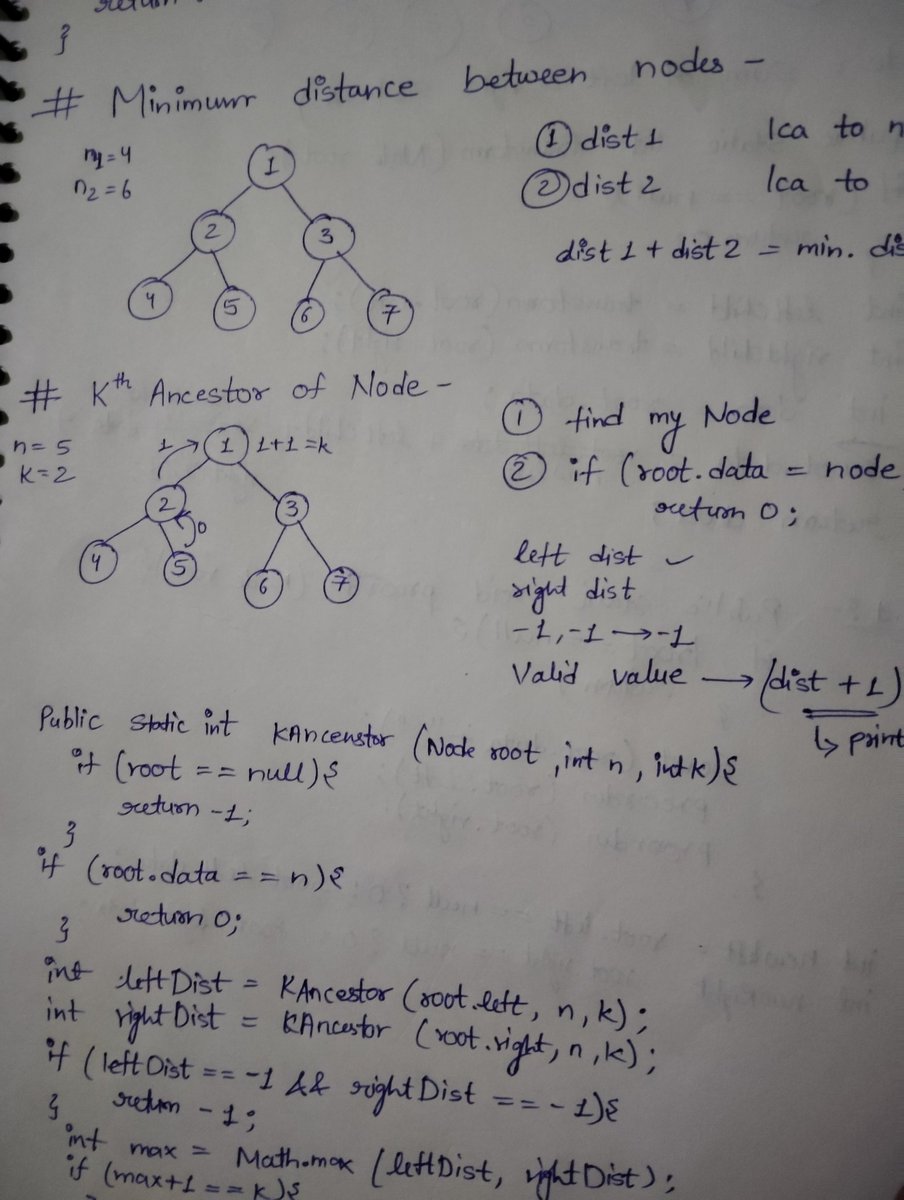 }
# Minimum distance between nodes -
n1 = 4
n2 = 6
1
2 3
4 5 6 7
① dist 1 lca to n
② dist 2 lca to
dist 1 + dist 2 = min. dis
# Kth Ancestor of Node -
n = 5
K = 2
1 1 1+1 = k
2 0 3
4 5 6 7
① find my Node
② if (root.data = node
return 0;
left dist ✓
right dist
-1, -1 → -1
Valid value → (dist + 1)
↳ print
Public static int KAncenstor (Node root, int n, int k){
if (root == null){
return -1;
}
if (root.data == n){
return 0;
}
int leftDist = KAncestor (root.left, n, k);
int rightDist = KAncestor (root.right, n, k);
if (leftDist == -1 && rightDist == -1){
return -1;
}
int max = Math.max (leftDist, rightDist);
if (max+1 == k){